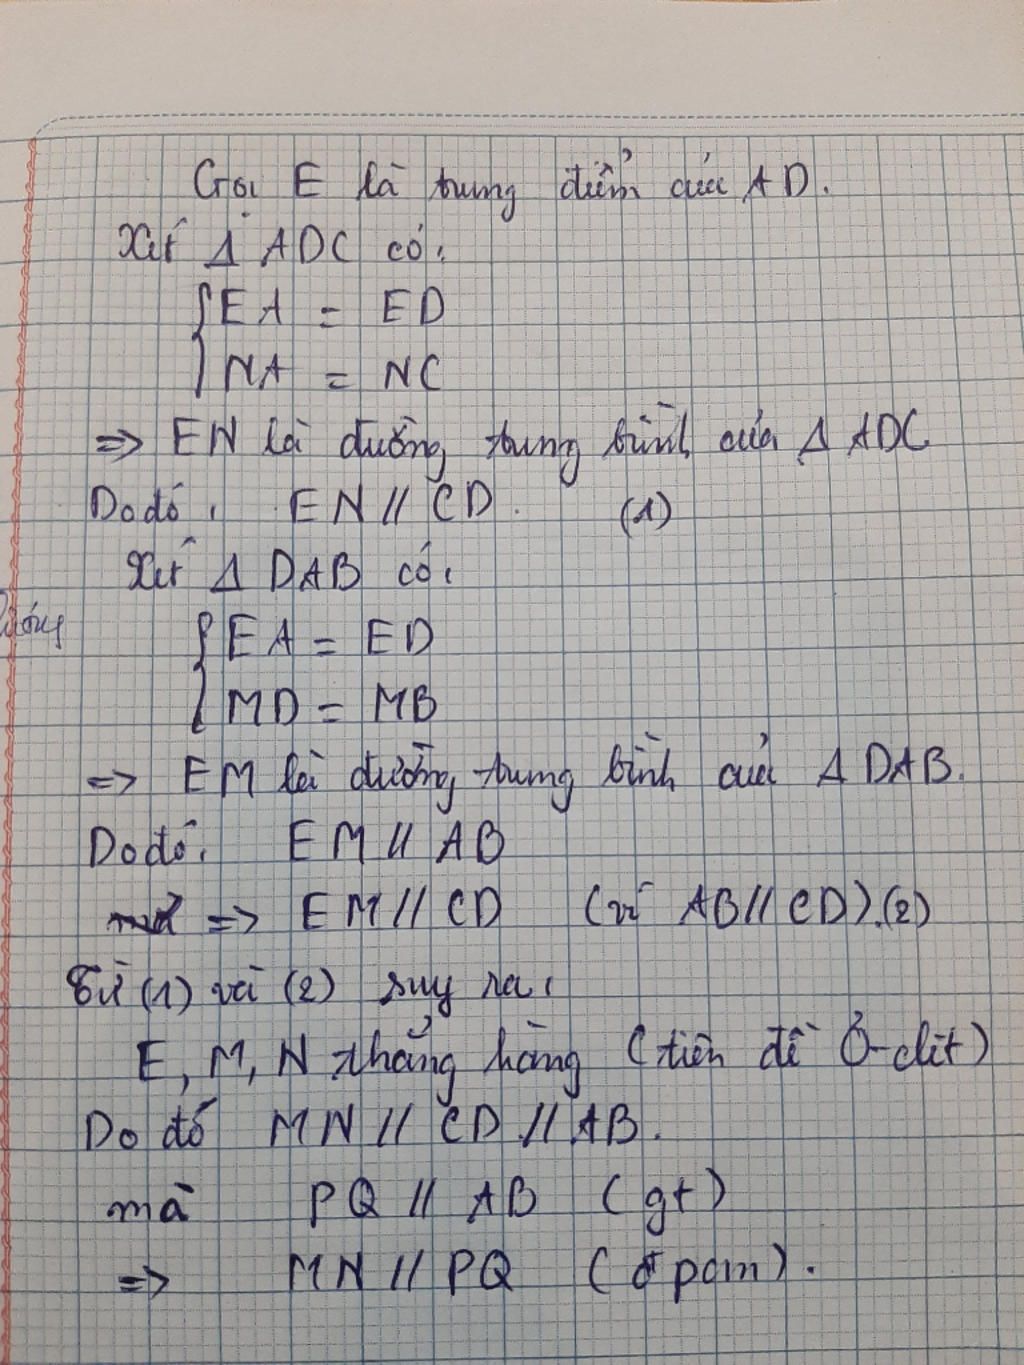 Gọi E là trung điểm của AD.
Xét Δ ADC có:
{ EA = ED
NA = NC
=> EN là đường trung bình của Δ ADC
Do đó: EN // CD. (1)
Xét Δ DAB có:
{ EA = ED
MD = MB
=> EM là đường trung bình của Δ DAB.
Do đó: EM // AB
=> EM // CD (vì AB // CD).(2)
Từ (1) và (2) suy ra:
E, M, N thẳng hàng (tiên đề Ơ-clit)
Do đó MN // CD // AB.
mà PQ // AB (gt)
=> MN // PQ (đpcm).